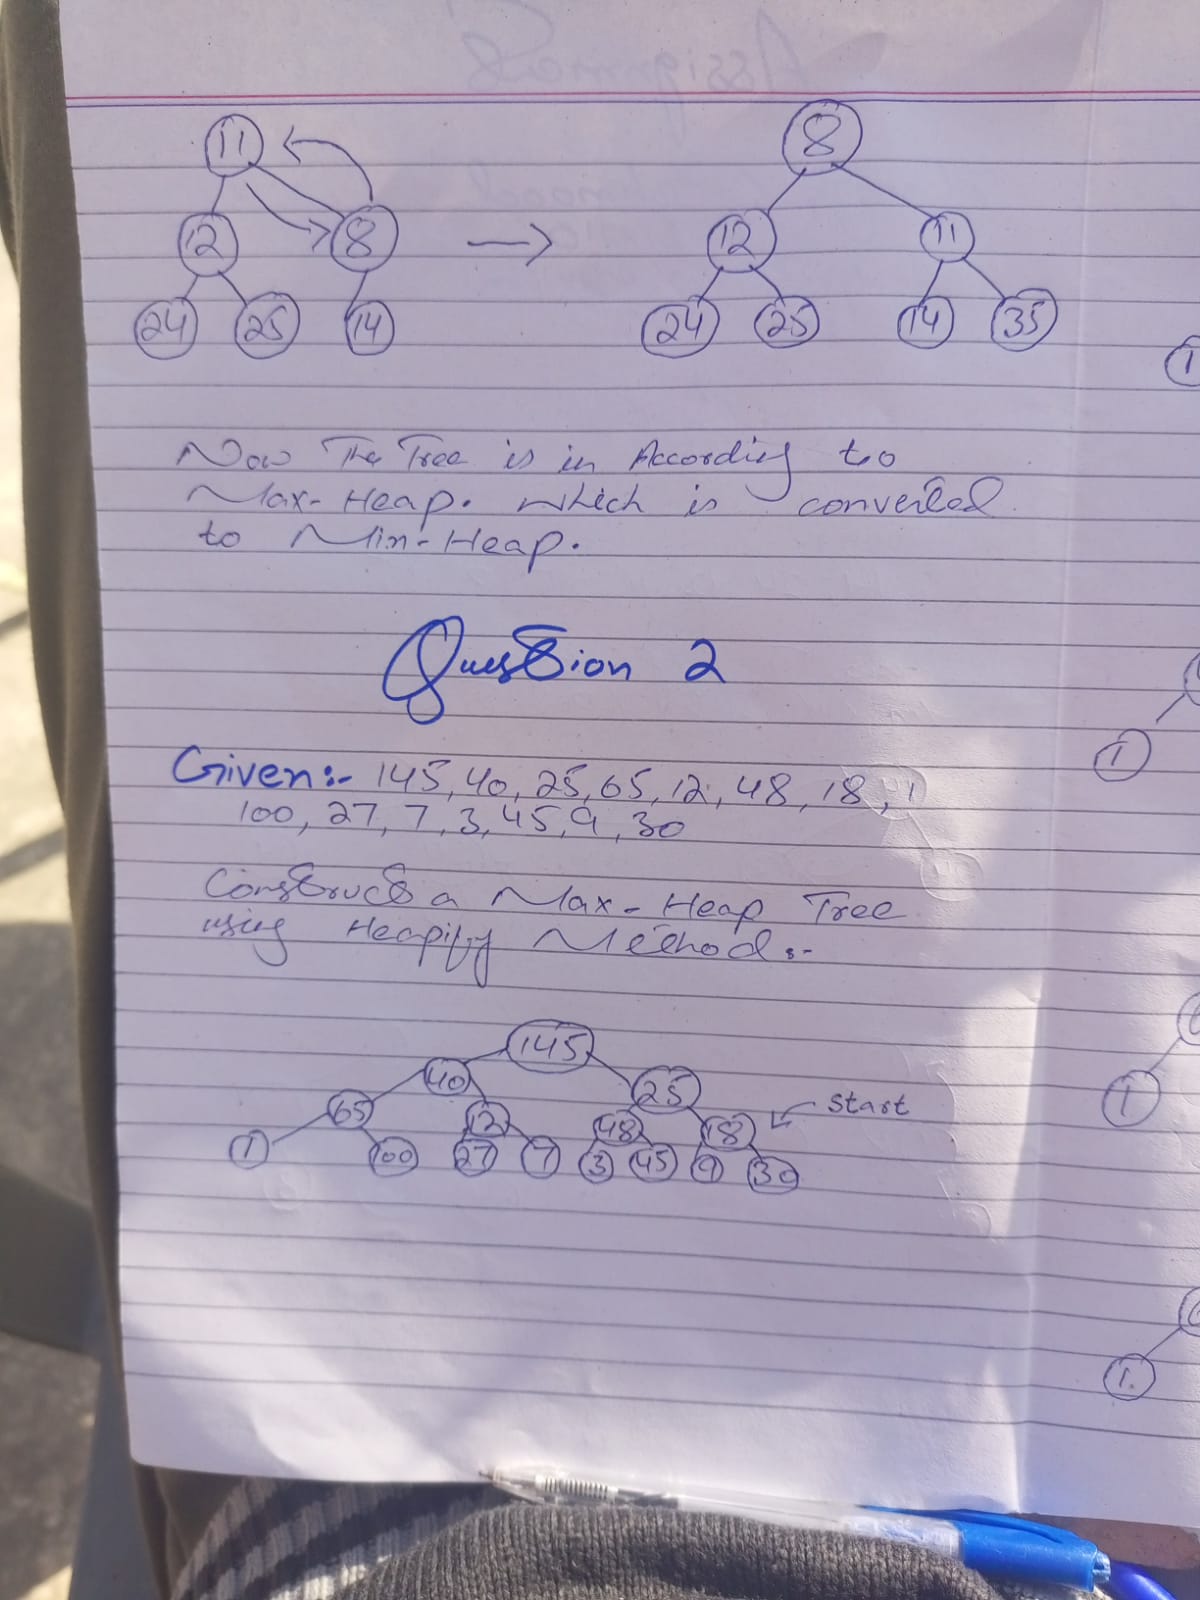 11
8
12
8
12
11
24
25
14
24
25
14
35
1
Now The Tree is in According to
Max-Heap. which is converted
to Min-Heap.
Question 2
Given:- 145, 40, 25, 65, 12, 48, 18, 1
100, 27, 7, 3, 45, 9, 30
1
Construct a Max-Heap Tree
using Heapify Method:-
145
40
25
start
65
12
48
18
1
100
27
7
3
45
9
30
1
1.